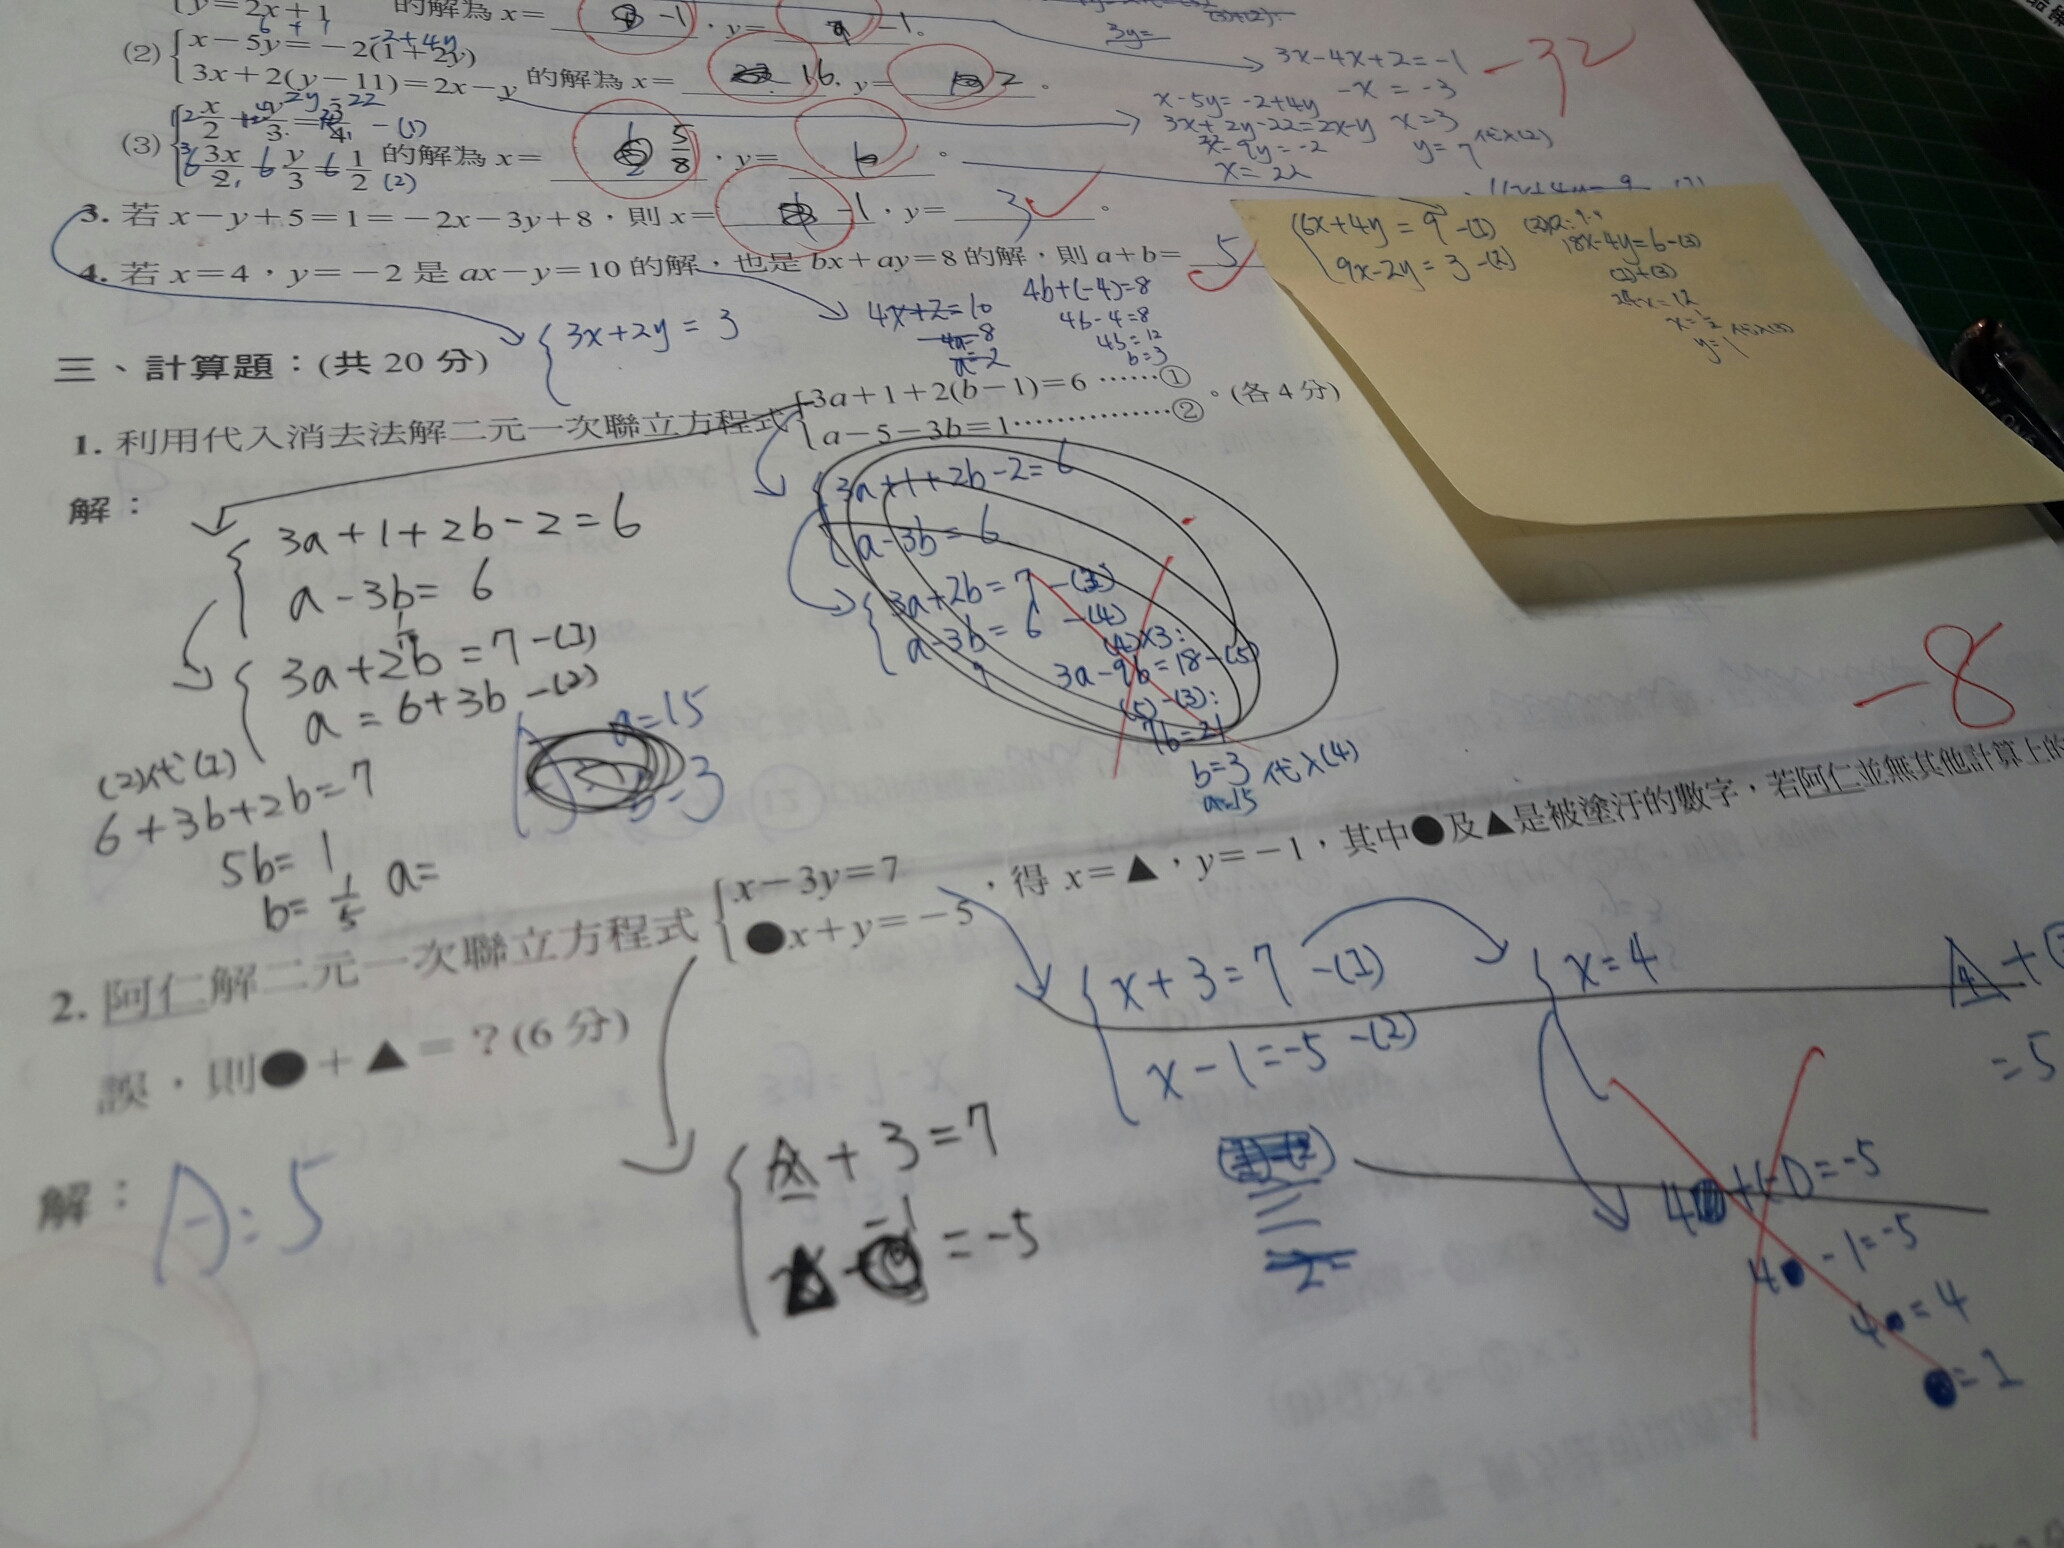 y=2x+1 的解為 x= -1,y= -1。
(2) x-5y=-2(1+2y)
3x+2(y-11)=2x-y 的解為 x= 16,y= 2。
(3) x/2 y/3 -(1)
3x/2 y/3 1/2 (2) 的解為 x= 5/8,y= 。
3x-4x+2=-1
-x=-3
x=3
y=7
-32
x-5y=-2+4y
3x+2y-22=2x-y
x=22
3. 若 x-y+5=1=-2x-3y+8,則 x= -1,y= 3。
4. 若 x=4,y=-2 是 ax-y=10 的解,也是 bx+ay=8 的解,則 a+b= 5
6x+4y=9 -(1)
9x-2y=3 -(2)
18x-4y=6-(3)
(1)+(3)
24x=12
x=1/2
y=1
3x+2y=3
4x+2=10
4a=8
a=2
4b+(-4)=8
4b-4=8
4b=12
b=3
三、計算題:(共 20 分)
1. 利用代入消去法解二元一次聯立方程式 3a+1+2(b-1)=6 ……①
a-5-3b=1……………② 。(各 4 分)
解:
3a+1+2b-2=6
a-3b=6
3a+2b=7-(1)
a=6+3b-(2)
(2)代(1)
6+3b+2b=7
5b=1
b=1/5 a=
a=15
b=3
3a+1+2b-2=6
a-3b=6
3a+2b=7-(3)
a-3b=6-(4)
(4)×3:
3a-9b=18-(5)
(5)-(3):
7b=21
b=3 代入(4)
a=15
-8
2. 阿仁解二元一次聯立方程式 x-3y=7
●x+y=-5 ,得 x=▲,y=-1,其中●及▲是被塗汙的數字,若阿仁並無其他計算上的
誤,則●+▲=?(6 分)
解:
A:5
x+3=7
=-5
x+3=7-(1)
x-1=-5-(2)
x=4
=5
4●+(-1)=-5
4●-1=-5
4●=4
●=1